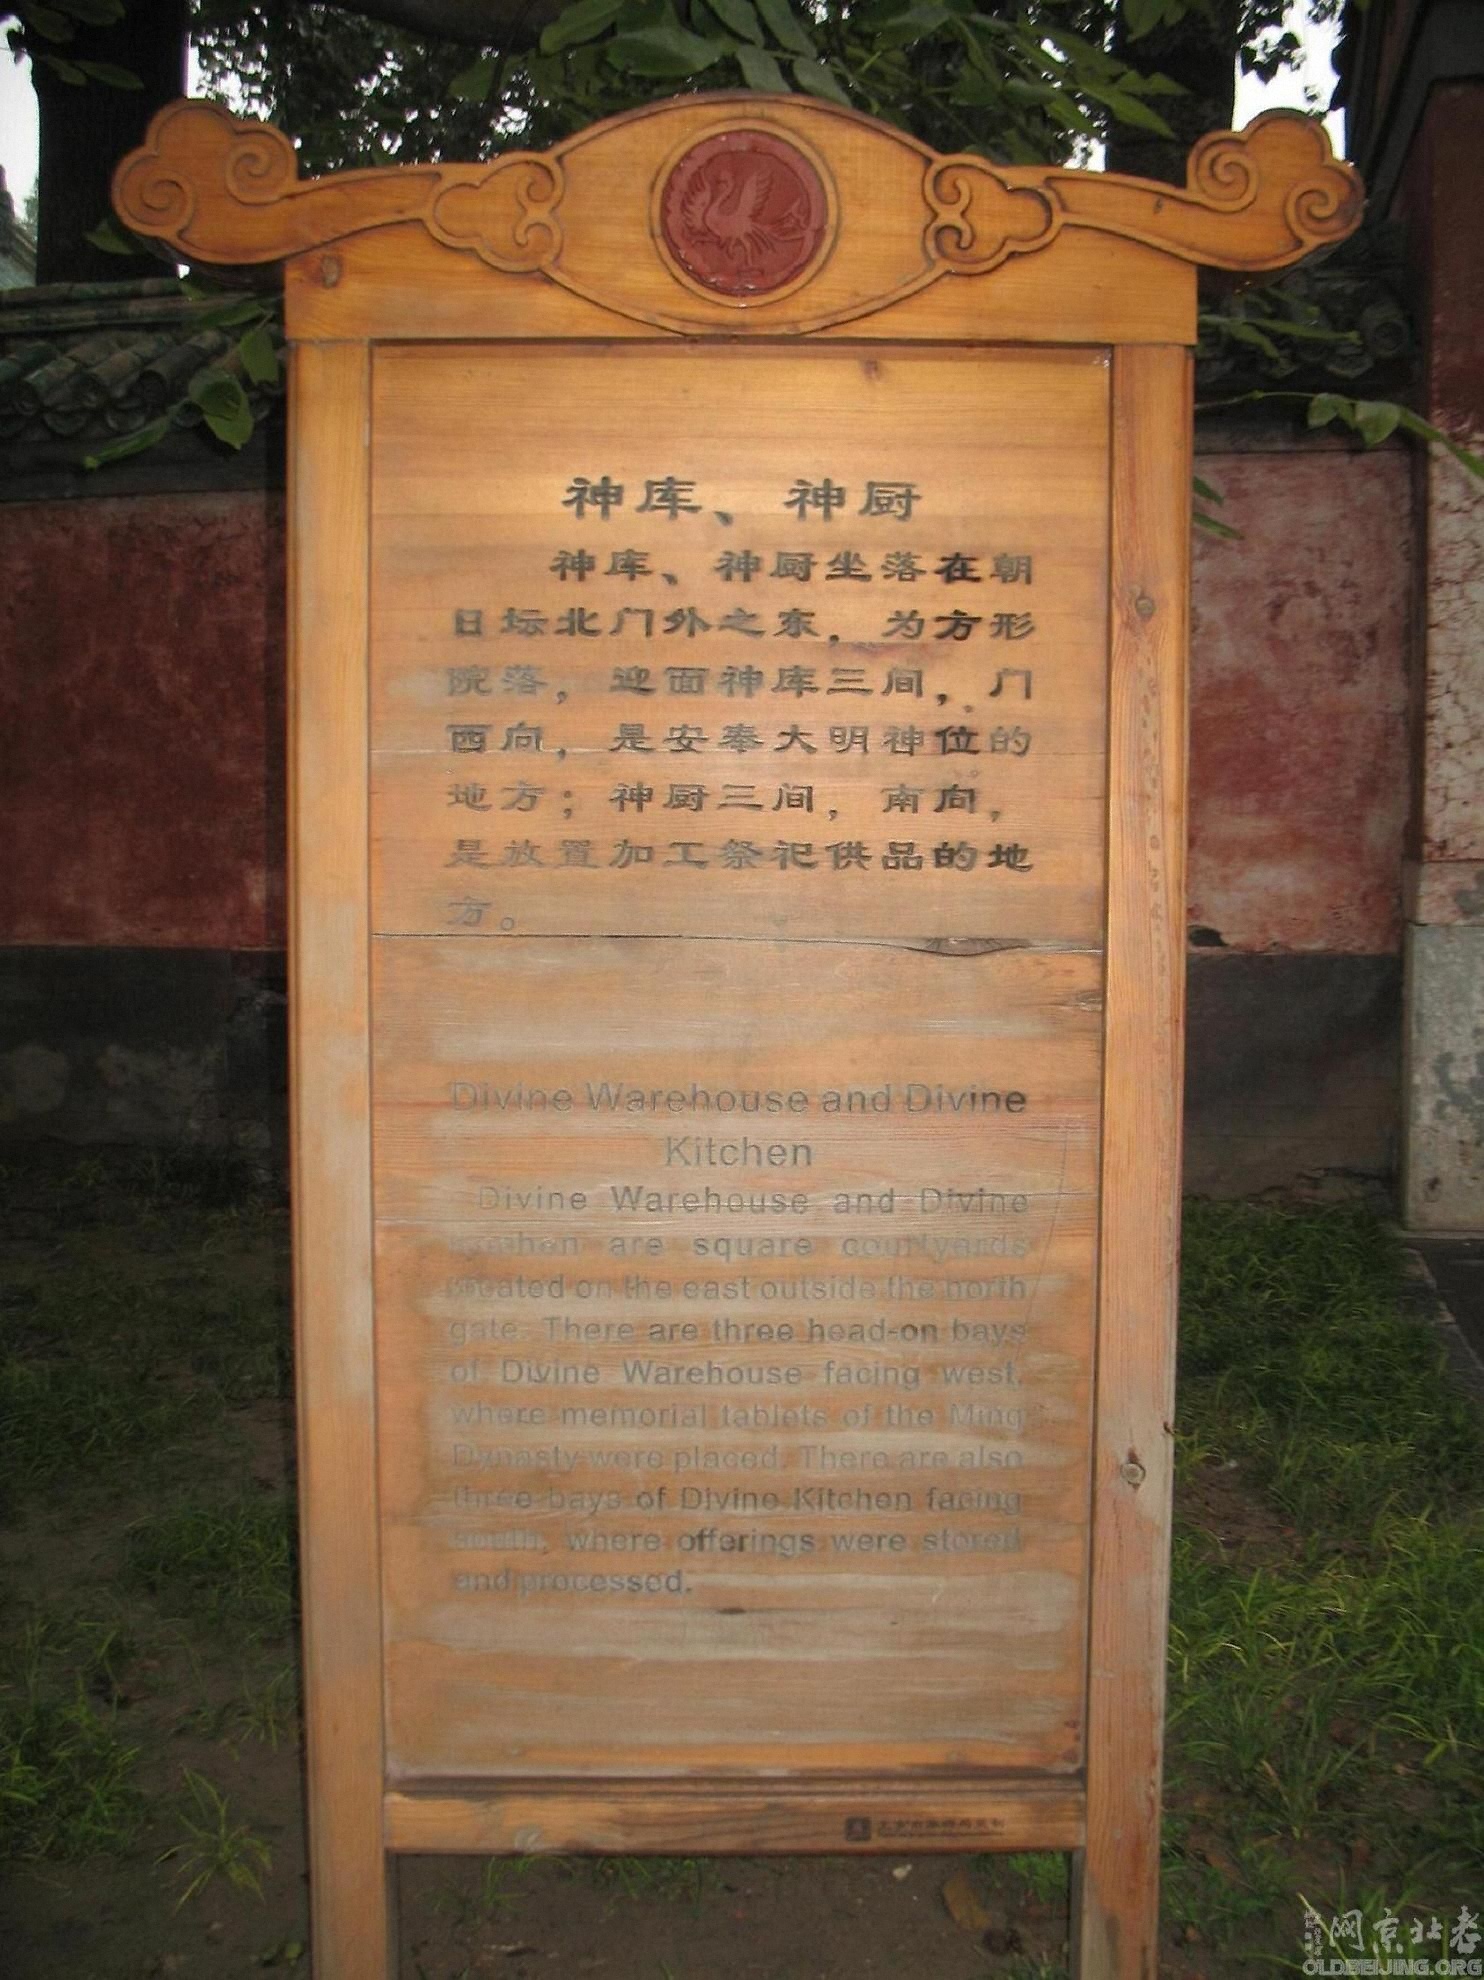 神库、神厨
神库、神厨坐落在朝
日坛北门外之东，为方形
院落，迎面神库三间，门
西向，是安奉大明神位的
地方；神厨三间，南向，
是放置加工祭祀供品的地
方。
Divine Warehouse and Divine
Kitchen
Divine Warehouse and Divine
Kitchen are square courtyards
located on the east outside the north
gate. There are three head-on bays
of Divine Warehouse facing west,
where memorial tablets of the Ming
Dynasty were placed. There are also
three bays of Divine Kitchen facing
south, where offerings were stored
and processed.
老北京网
OLDBEIJING.ORG